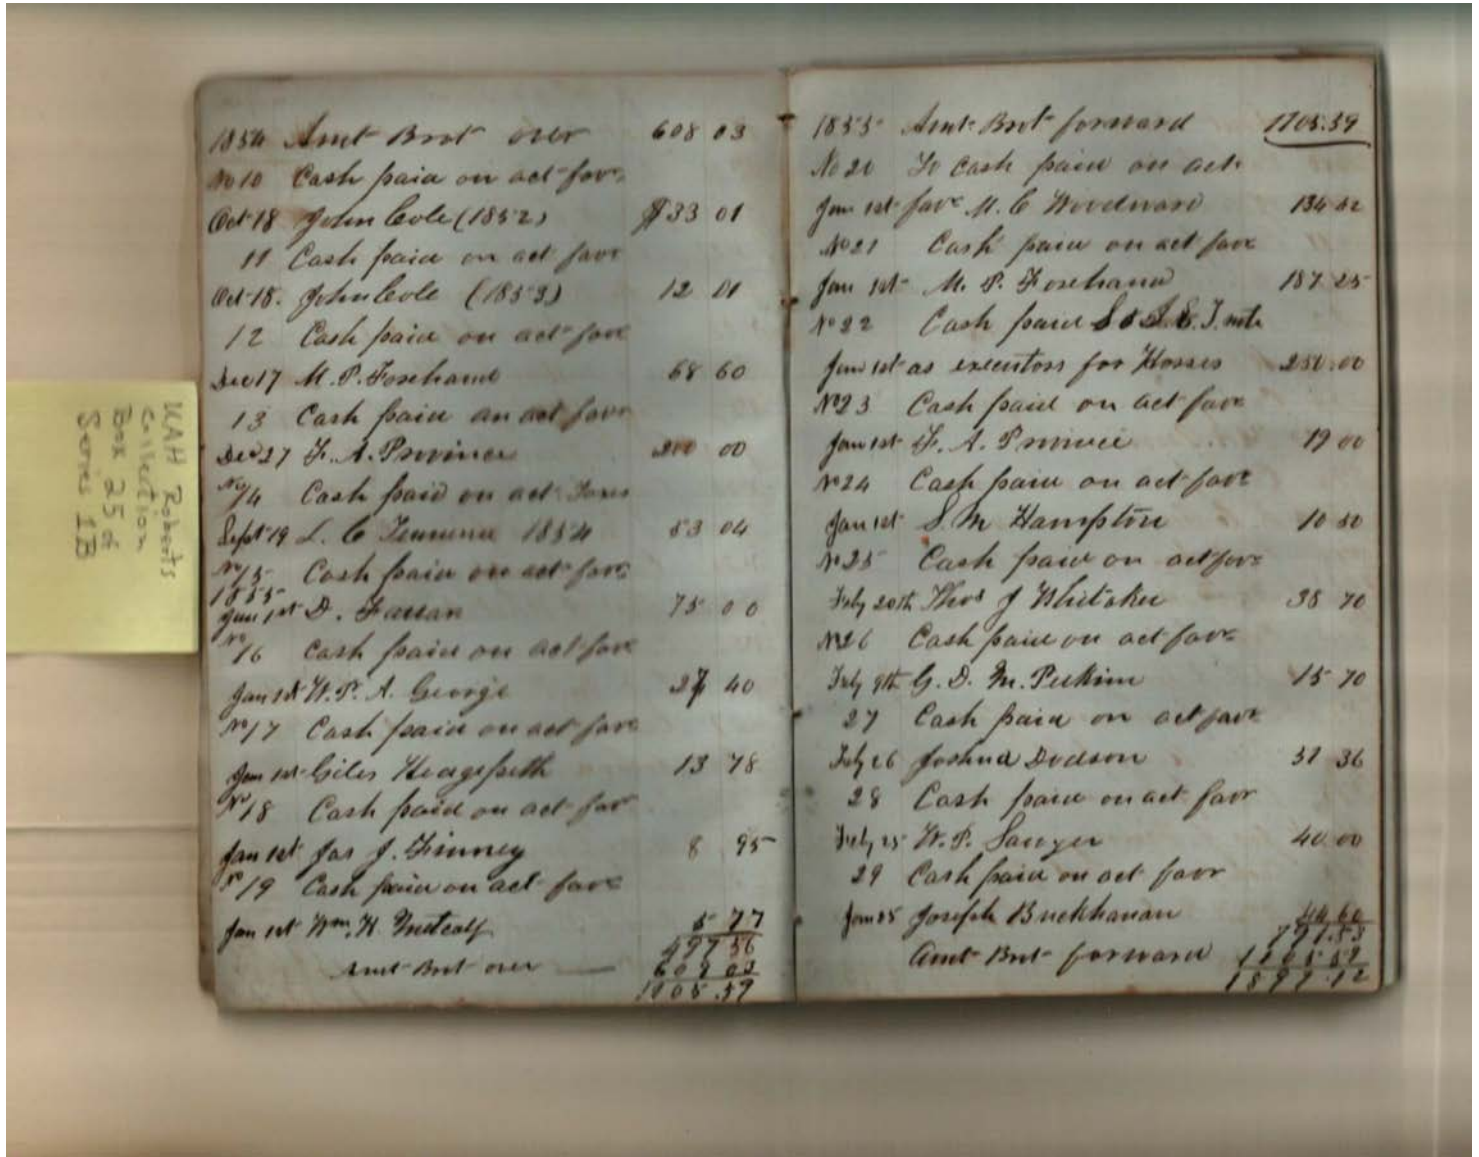 UAH Roberts
Collection
Box 25 of
Series 1B
1854 Amt Brot over 608 03
No 10 Cash paid on act favr
Oct 18 John Cole (1852) $33 01
11 Cash paid on act favr
Oct 18. John Cole (1853) 12 01
12 Cash paid on act favr
Dec 17 M. P. Forehand 68 60
13 Cash paid on act favr
Dec 27 F. A. Province 200 00
No 14 Cash paid on act
Sept 19 L. C. 1854 53 04
No 15 Cash paid on act favr
1855
Jan 1st D. 75 00
No 16 Cash paid on act favr
Jan 1st W. P. A. George 27 40
No 17 Cash paid on act favr
Jan 1st Giles Hedgpeth 13 78
No 18 Cash paid on act favr
Jan 1st Jas J. Finney 8 95
No 19 Cash paid on act favr
Jan 1st Wm. H. Metcalf 5 77
497 56
Amt Brot over 608 03
1105.59
1855 Amt Brot forward 1105.59
No 20 To cash paid on act
Jan 1st favr M. C Woodward 134 52
No 21 Cash paid on act favr
Jan 1st M. P. Forehand 187 25
No 22 Cash paid
Jan 1st as executors for Horses 250.00
No 23 Cash paid on act favr
Jan 1st F. A. Province 19 00
No 24 Cash paid on act favr
Jan 1st S. M Hampton 10 50
No 25 Cash paid on act favr
Feby 20th Thos J Whitaker 38 70
No 26 Cash paid on act favr
Feby 9th G. D. M. Perkins 15 70
27 Cash paid on act favr
Feby 26 Joshua Dodson 51 36
28 Cash paid on act favr
Feby 25 W. P. Sawyer 40 00
29 Cash paid on act favr
Jan 25 Joseph Buckhanan 44 60
791.53
Amt Brot forward 1105 59
1897.12